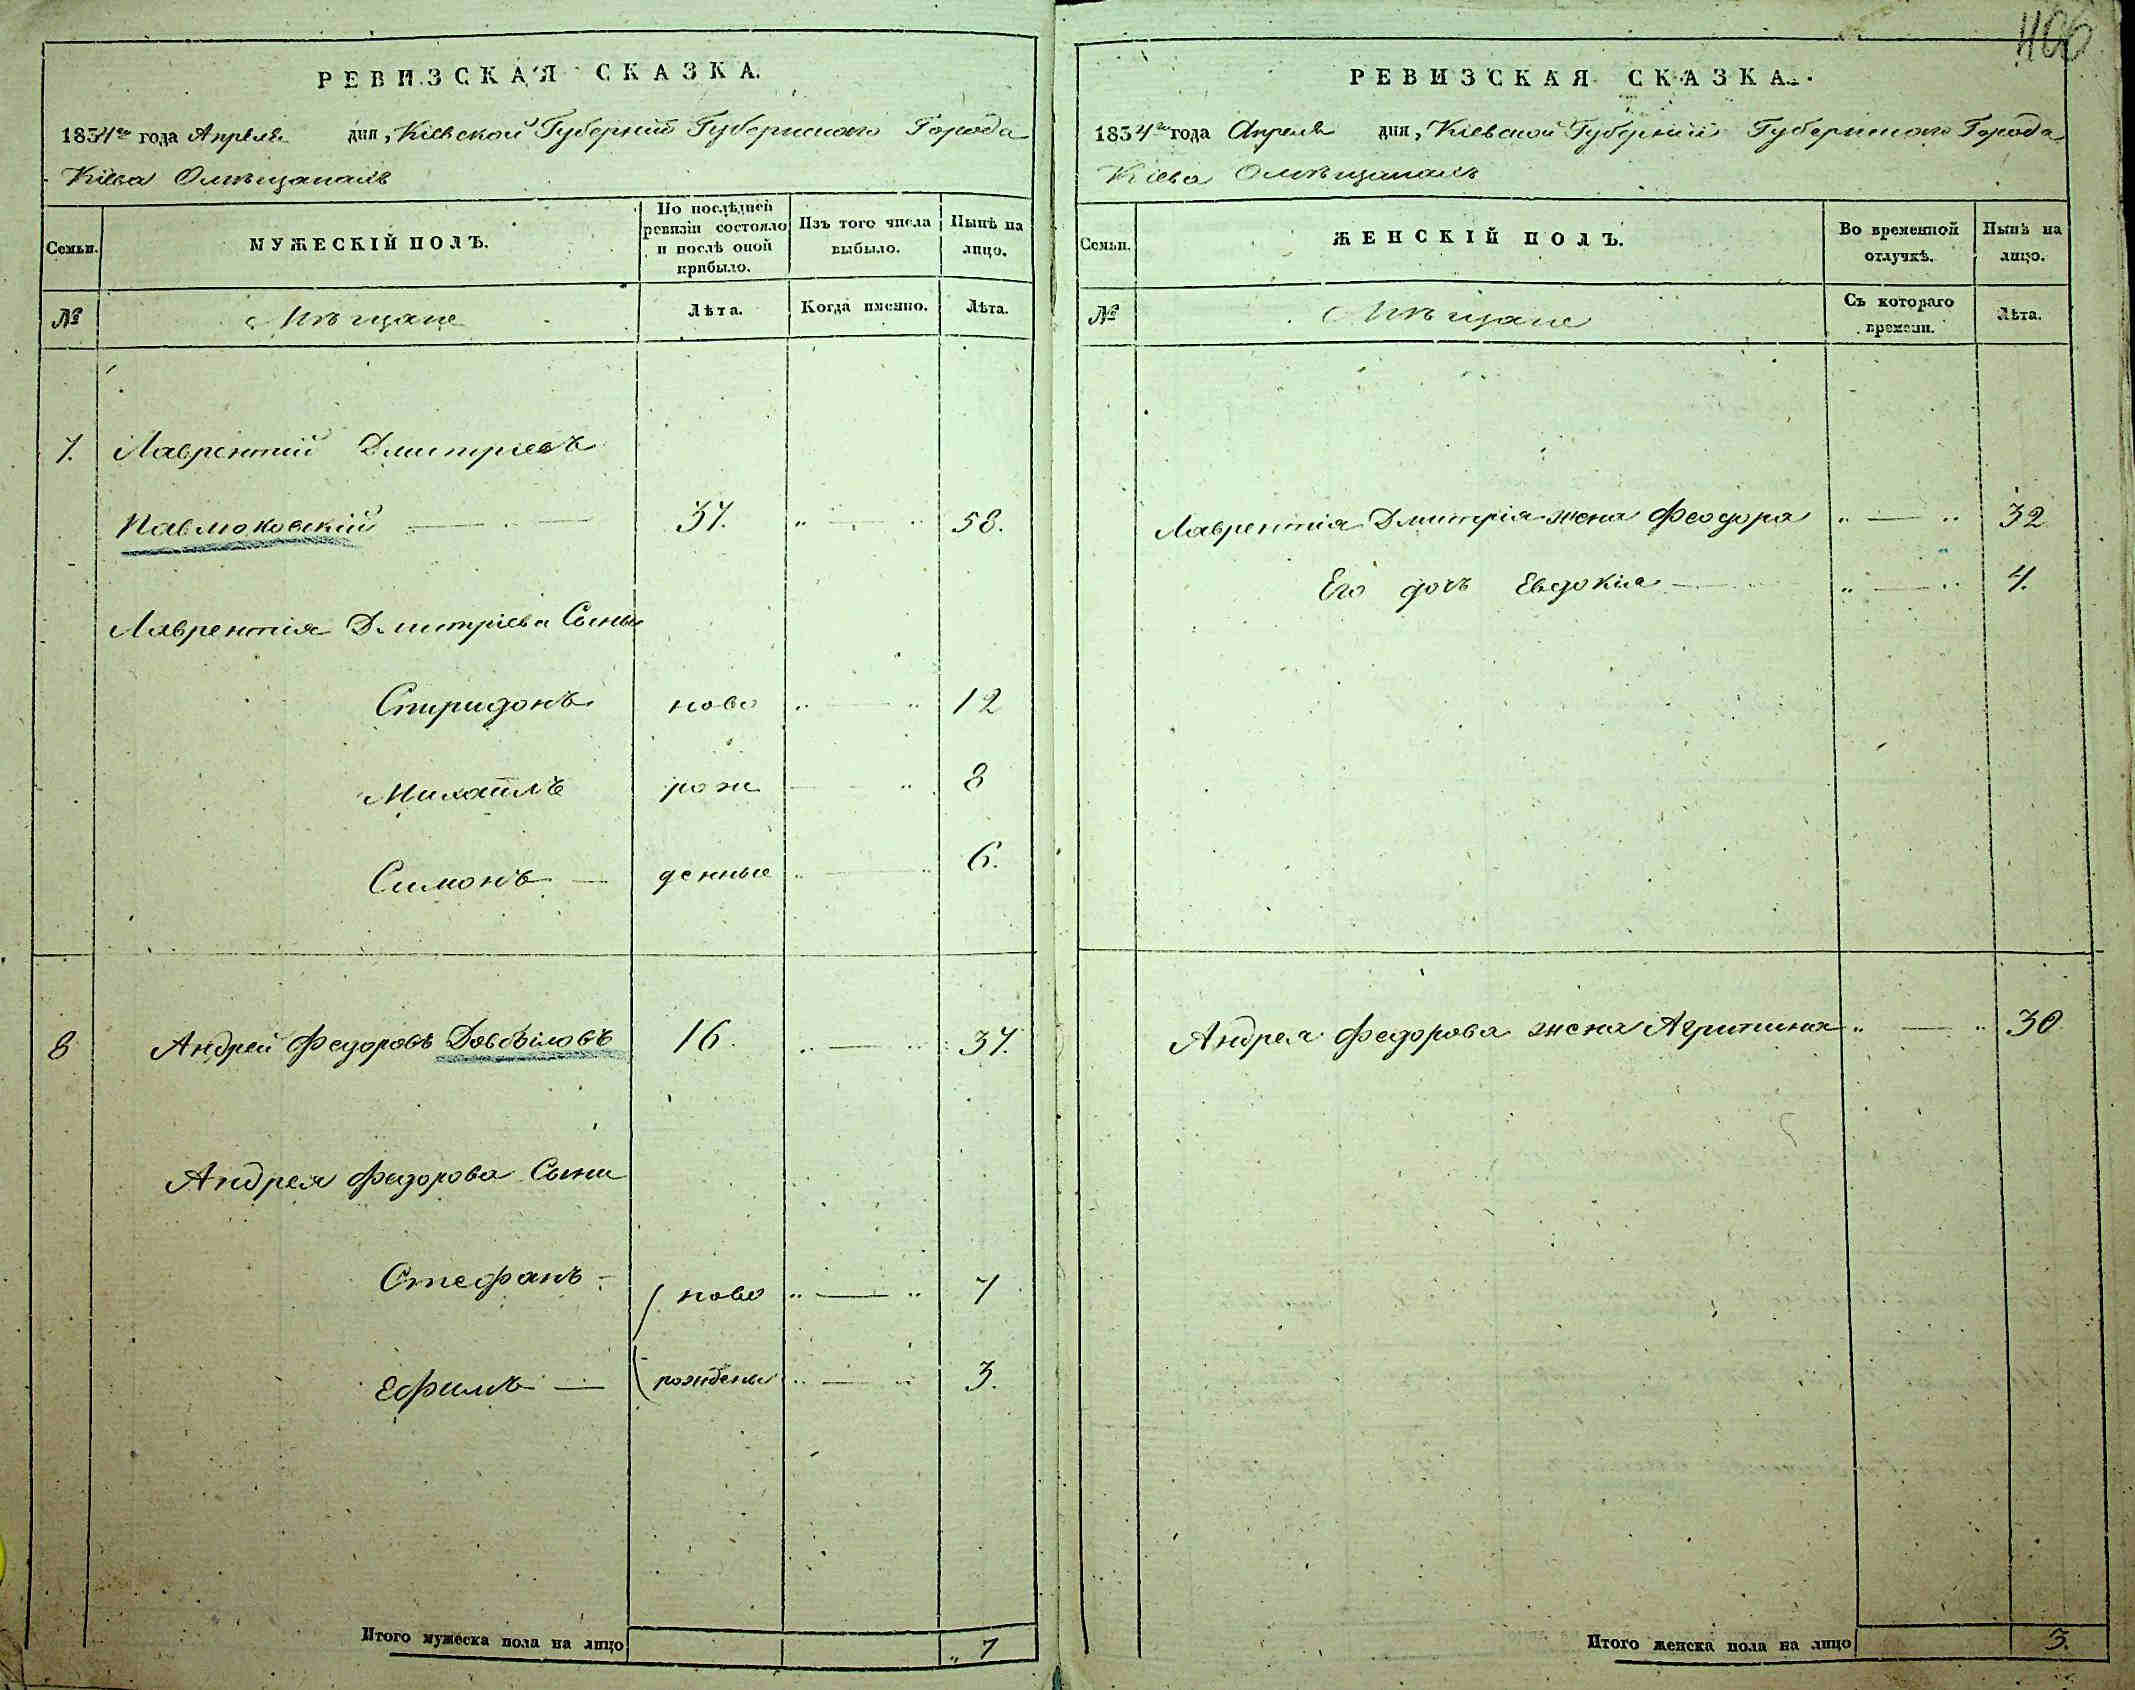 406
РЕВИЗСКАЯ СКАЗКА.
1834го года Апреля дня, Кіевской Губерніи Губернского Города
Кіева О мѣщанахъ
Семьи.
МУЖЕСКІЙ ПОЛЪ.
По послѣдней ревизіи состояло и послѣ оной прибыло.
Изъ того числа выбыло.
Нынѣ на лицо.
№
Мѣщане
Лѣта.
Когда именно.
Лѣта.
7. Лаврентий Дмитриевъ
37. „ — „ 58.
Лаврентія Дмитріева Сыны
Спиридонъ ново „ — „ 12
Михаилъ рож — „ 8
Симонъ — денные „ — „ 6.
8 Андрей Федоровъ 16. „ — „ 37.
Андрея Федорова Сыни
Стефанъ - ново „ — „ 7
Ефимъ — рождены „ — „ 3.
Итого мужеска пола на лицо „ 7
РЕВИЗСКАЯ СКАЗКА.
1834го года Апреля дня, Кіевской Губерніи Губернского Города
Кіева О мѣщанахъ
Семьи.
ЖЕНСКІЙ ПОЛЪ.
Во временной отлучкѣ.
Нынѣ на лицо.
№
Мѣщане
Съ котораго времени.
Лѣта.
Лаврентія Дмитрія жена Феодора „ — „ 32
Его дочь Евдокіа — „ — „ 4.
Андрея Федорова жена Агрипина „ — „ 30
Итого женска пола на лицо 3.